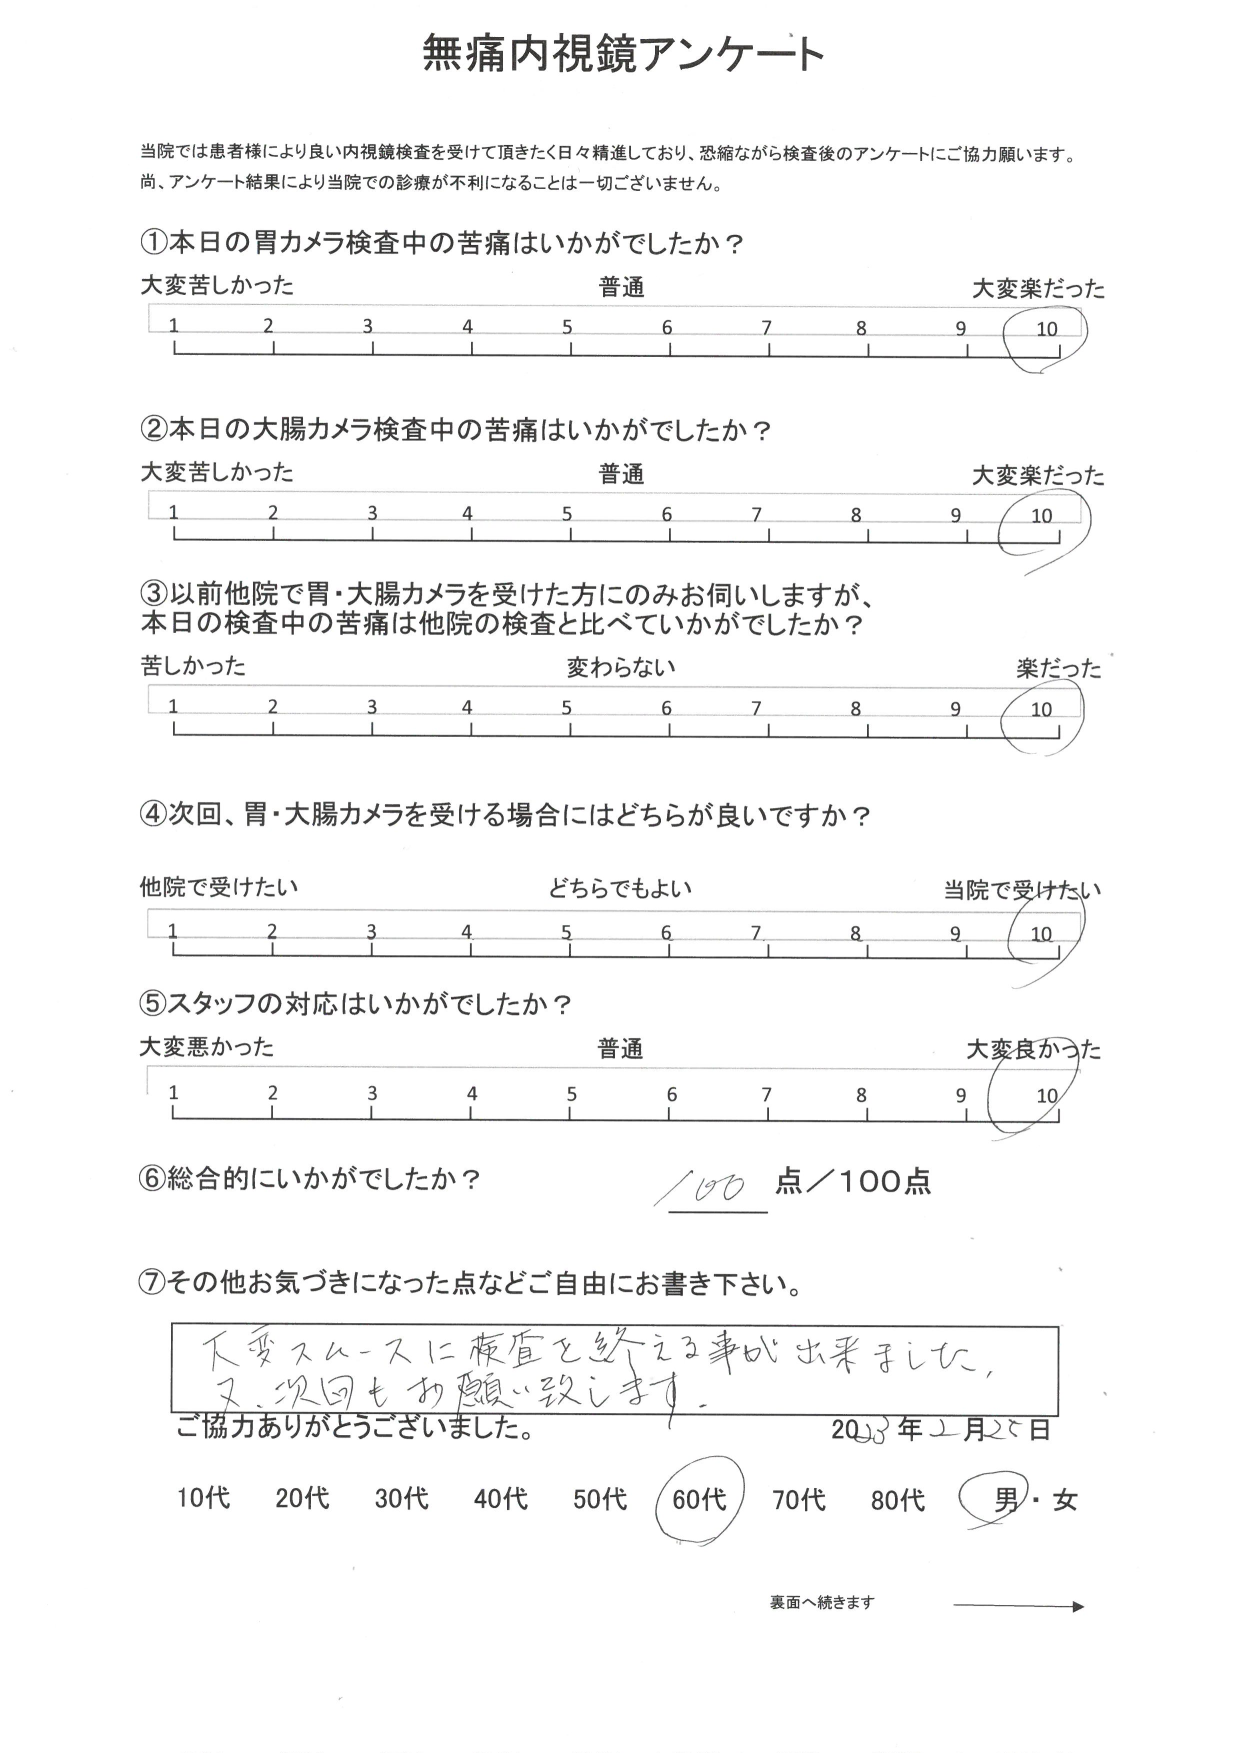 無痛内視鏡アンケート
当院では患者様により良い内視鏡検査を受けて頂きたく日々精進しており、恐縮ながら検査後のアンケートにご協力願います。
尚、アンケート結果により当院での診療が不利になることは一切ございません。
①本日の胃カメラ検査中の苦痛はいかがでしたか？
大変苦しかった 普通 大変楽だった
1 2 3 4 5 6 7 8 9 10
②本日の大腸カメラ検査中の苦痛はいかがでしたか？
大変苦しかった 普通 大変楽だった
1 2 3 4 5 6 7 8 9 10
③以前他院で胃・大腸カメラを受けた方にのみお伺いしますが、
本日の検査中の苦痛は他院の検査と比べていかがでしたか？
苦しかった 変わらない 楽だった
1 2 3 4 5 6 7 8 9 10
④次回、胃・大腸カメラを受ける場合にはどちらが良いですか？
他院で受けたい どちらでもよい 当院で受けたい
1 2 3 4 5 6 7 8 9 10
⑤スタッフの対応はいかがでしたか？
大変悪かった 普通 大変良かった
1 2 3 4 5 6 7 8 9 10
⑥総合的にいかがでしたか？ 100 点／100点
⑦その他お気づきになった点などご自由にお書き下さい。
大変スムースに検査を終える事が出来ました。
又、次回もお願い致します。
ご協力ありがとうございました。 2023年2月25日
10代 20代 30代 40代 50代 60代 70代 80代 男・女
裏面へ続きます